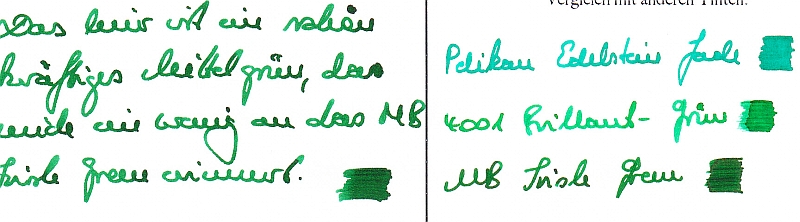 Das hier ist ein schön
kräftiges Mittelgrün, das
mich ein wenig an das MB
Irish Green erinnert.
Vergleich mit anderen Tinten:
Pelikan Edelstein Jade
4001 Brillant-Grün
MB Irish Green